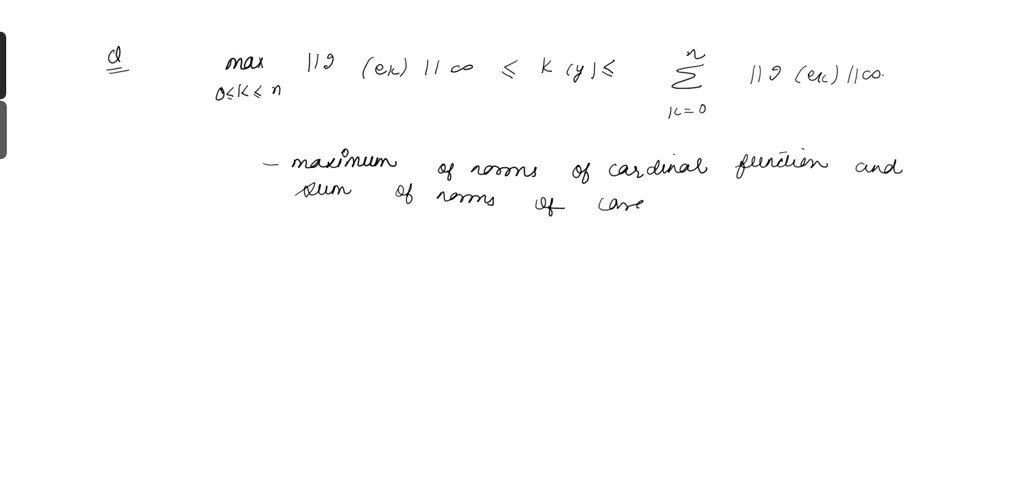 d max ||g (ek) ||∞ ≤ K (y) ≤ Σ ||g (ek) ||∞.
0≤k≤n n k=0
- maximum of norms of cardinal function and
sum of norms of case